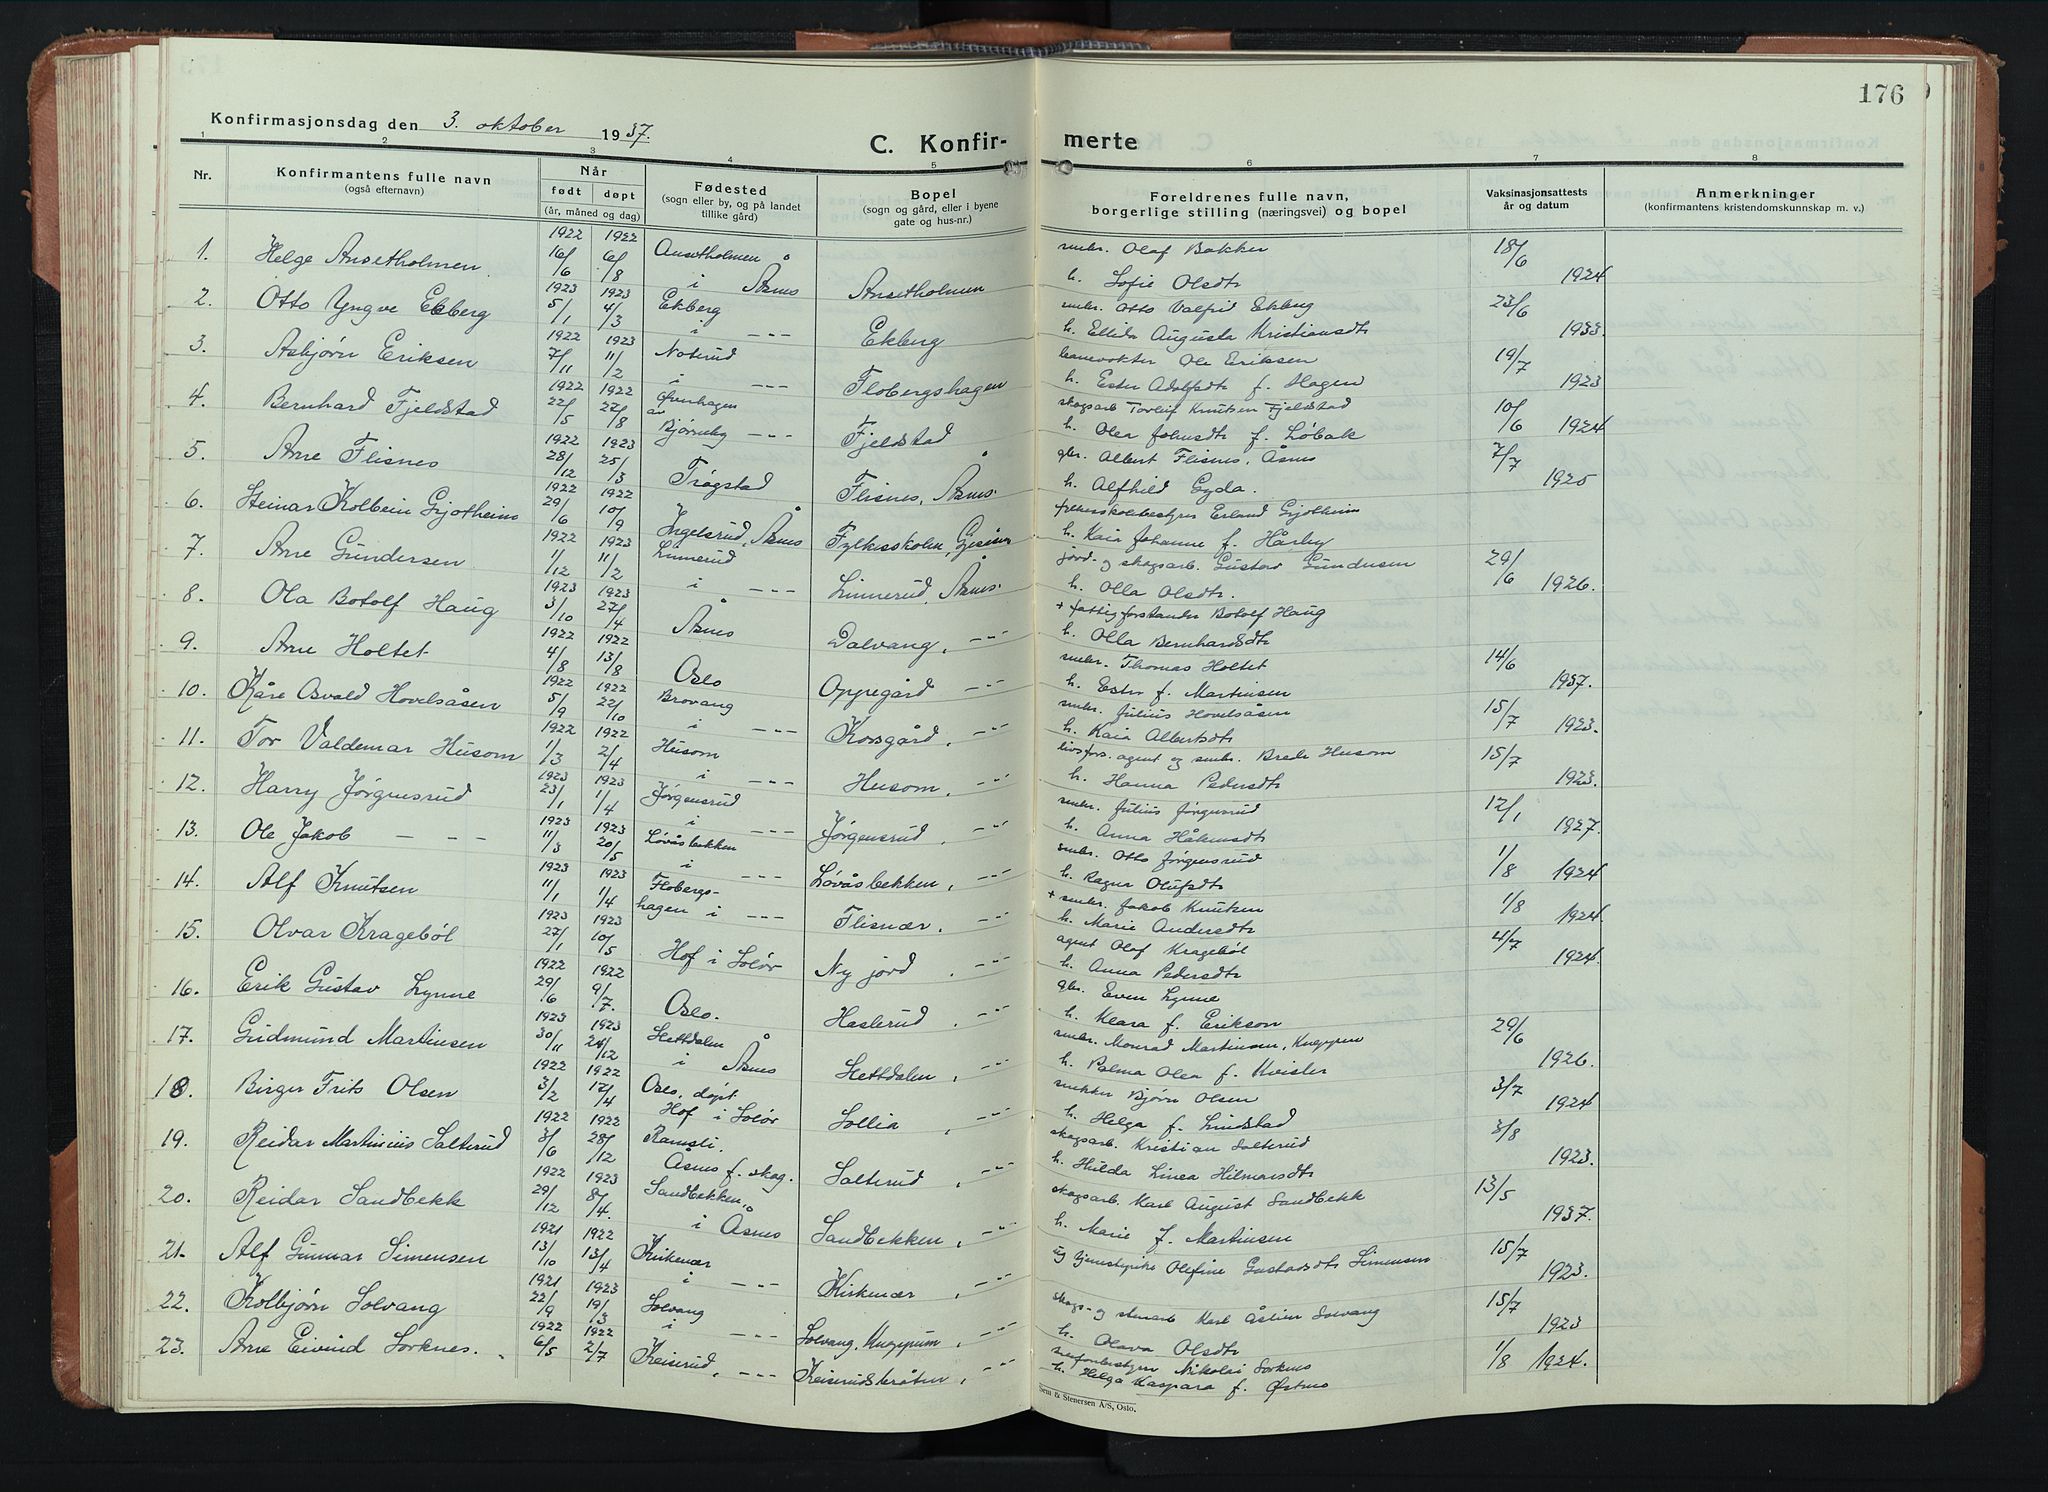 176
Konfirmasjonsdag den 3. oktober 1937.
C. Konfir-merte
1 2 3 4 5 6 7 8
Nr.
Konfirmantens fulle navn
(også efternavn)
Når
født døpt
(år, måned og dag)
Fødested
(sogn eller by, og på landet
tillike gård)
Bopel
(sogn og gård, eller i byene
gate og hus-nr.)
Foreldrenes fulle navn,
borgerlige stilling (næringsvei) og bopel
Vaksinasjonsattests
år og datum
Anmerkninger
(konfirmantens kristendomskunnskap m. v.)
1. Helge Ansetholmen 1922 16/6 1922 6/8 Ansetholmen i Åsnes Ansetholmen smbr. Olaf Bakken
h. Sofie Olsdtr 18/6 1924
2. Otto Yngve Ekberg 1923 5/1 1923 4/3 Ekberg i --- Ekberg smbr. Otto Valfrid Ekberg
h. Ellida Augusta Kristiansdtr 23/6 1933
3. Asbjørn Eriksen 1922 7/11 1923 11/2 Noterud i --- Flobergshagen banevokter Ole Eriksen
h. Ester Adolfsdtr f. Hagen 19/7 1923
4. Bernhard Fjeldstad 1922 22/5 1922 27/8 av Bjørneby --- Fjeldstad skogsarb Torleif Knutsen Fjeldstad
h. Olea Johnsdtr f. Løbak 10/6 1924
5. Arne Flisnes 1922 28/12 1923 25/3 Trøgstad Flisnes, Åsnes. gbr. Albert Flisnes, Åsnes
h. Alfhild Gyda. 7/7 1925
6. Steinar Kolbein Gjotheim 1922 29/6 1922 10/9 Ingelsrud, Åsnes Fylkesskolen, fylkesskolebestyrer Erland Gjotheim
h. Kaia Johanne f. Hårby
7. Arne Gundersen 1922 11/12 1923 11/2 Linnerud i --- Linnerud, Åsnes. jord- og skogsarb. Gustav Gundersen
h. Olla Olsdtr. 29/6 1926.
8. Ola Botolf Haug 1923 3/10 1923 27/4 Åsnes Dalvang, --- + fattigforstander Botolf Haug
h. Olla Bernhardsdtr
9. Arne Holtet 1922 4/8 1922 13/8 Oslo Oppegård --- smbr. Thomas Holtet
h. Ester f. Martinsen 14/6 1937.
10. Kåre Osvald Hovelsåsen 1922 5/9 1922 22/10 Brovang i --- Korsgård, --- smbr. Julius Hovelsåsen
h. Kaia Albertsdtr 15/7 1923.
11. Tor Valdemar Husom 1922 1/3 1922 2/4 Husom i --- Husom, --- livsfors. agent og smbr. Brede Husom
h. Hanna Pedersdtr 15/7 1923.
12. Harry Jørgensrud 1923 23/1 1923 1/4 Jørgensrud i --- Jørgensrud, --- smbr. Julius Jørgensrud
h. Anna Håkensdtr 12/1 1927.
13. Ole Jakob — — — 1923 11/3 1923 20/5 Løvåsbekken i --- Løvåsbekken, --- smbr. Otto Jørgensrud
h. Ragna Olufsdtr 1/8 1924
14. Alf Knutsen 1923 11/1 1923 1/4 Flobergs-
hagen i --- Flisnær. --- + smbr. Jakob Knutsen
h. Marie Andersdtr 1/8 1924.
15. Olvar Kragebøl 1923 27/1 1923 10/5 Hof i Solør Ny jord, --- agent Olaf Kragebøl
h. Anna Pedersdtr 4/7 1924.
16. Erik Gustav Lynne 1922 29/6 1922 9/7. Oslo. Haslerud, --- gbr. Even Lynne
h. Klara f. Erikson
17. Gudmund Martinsen 1923 30/11 1923 24/12 Hettdalen i Åsnes Hettdalen, --- smbr. Monrad Martinsen, Knappum
h. Palma Olea f. Kvisler 29/6 1926.
18. Birger Frits Olsen 1922 3/2 1922 17/4 Oslo, døpt
Hof i Solør Sollia, --- snekker Bjørn Olsen
h. Helga f. Lindstad 3/7 1924
19. Reidar Martinius Salterud 1922 3/6 1922 28/12 Ramsli,
Åsnes f. skog. Salterud, --- skogsarb. Kristian Salterud
h. Hulda Linea Hilmarsdtr 3/8 1923.
20. Reidar Sandbekk 1922 29/12 1923 8/4. Sandbekken,
i Åsnes Sandbekken, --- skogsarb Karl August Sandbekk
h. Marie f. Martinsen 13/5 1937.
21. Alf Gunnar Simensen 1921 13/10 1922 13/4 Kirkenær i --- Kirkenær, --- ug tjenestepike Olefine Gustavsdtr Simensen 15/7 1923.
22. Kolbjørn Solvang 1921 22/9 1923 19/3 Solvang i --- Solvang, Knappum, --- skogs- og stenarb Karl Solvang
h. Olava Olsdtr 15/7 1923
23. Arne Eivind Sorknes. 1922 6/5 1922 2/7 Keiserud, --- Keiserudsbråten, --- Nikolai Sorknes
h. Helga Kaspara f. Østmo 1/8 1924.
Sem & Stenersen A/S, Oslo.